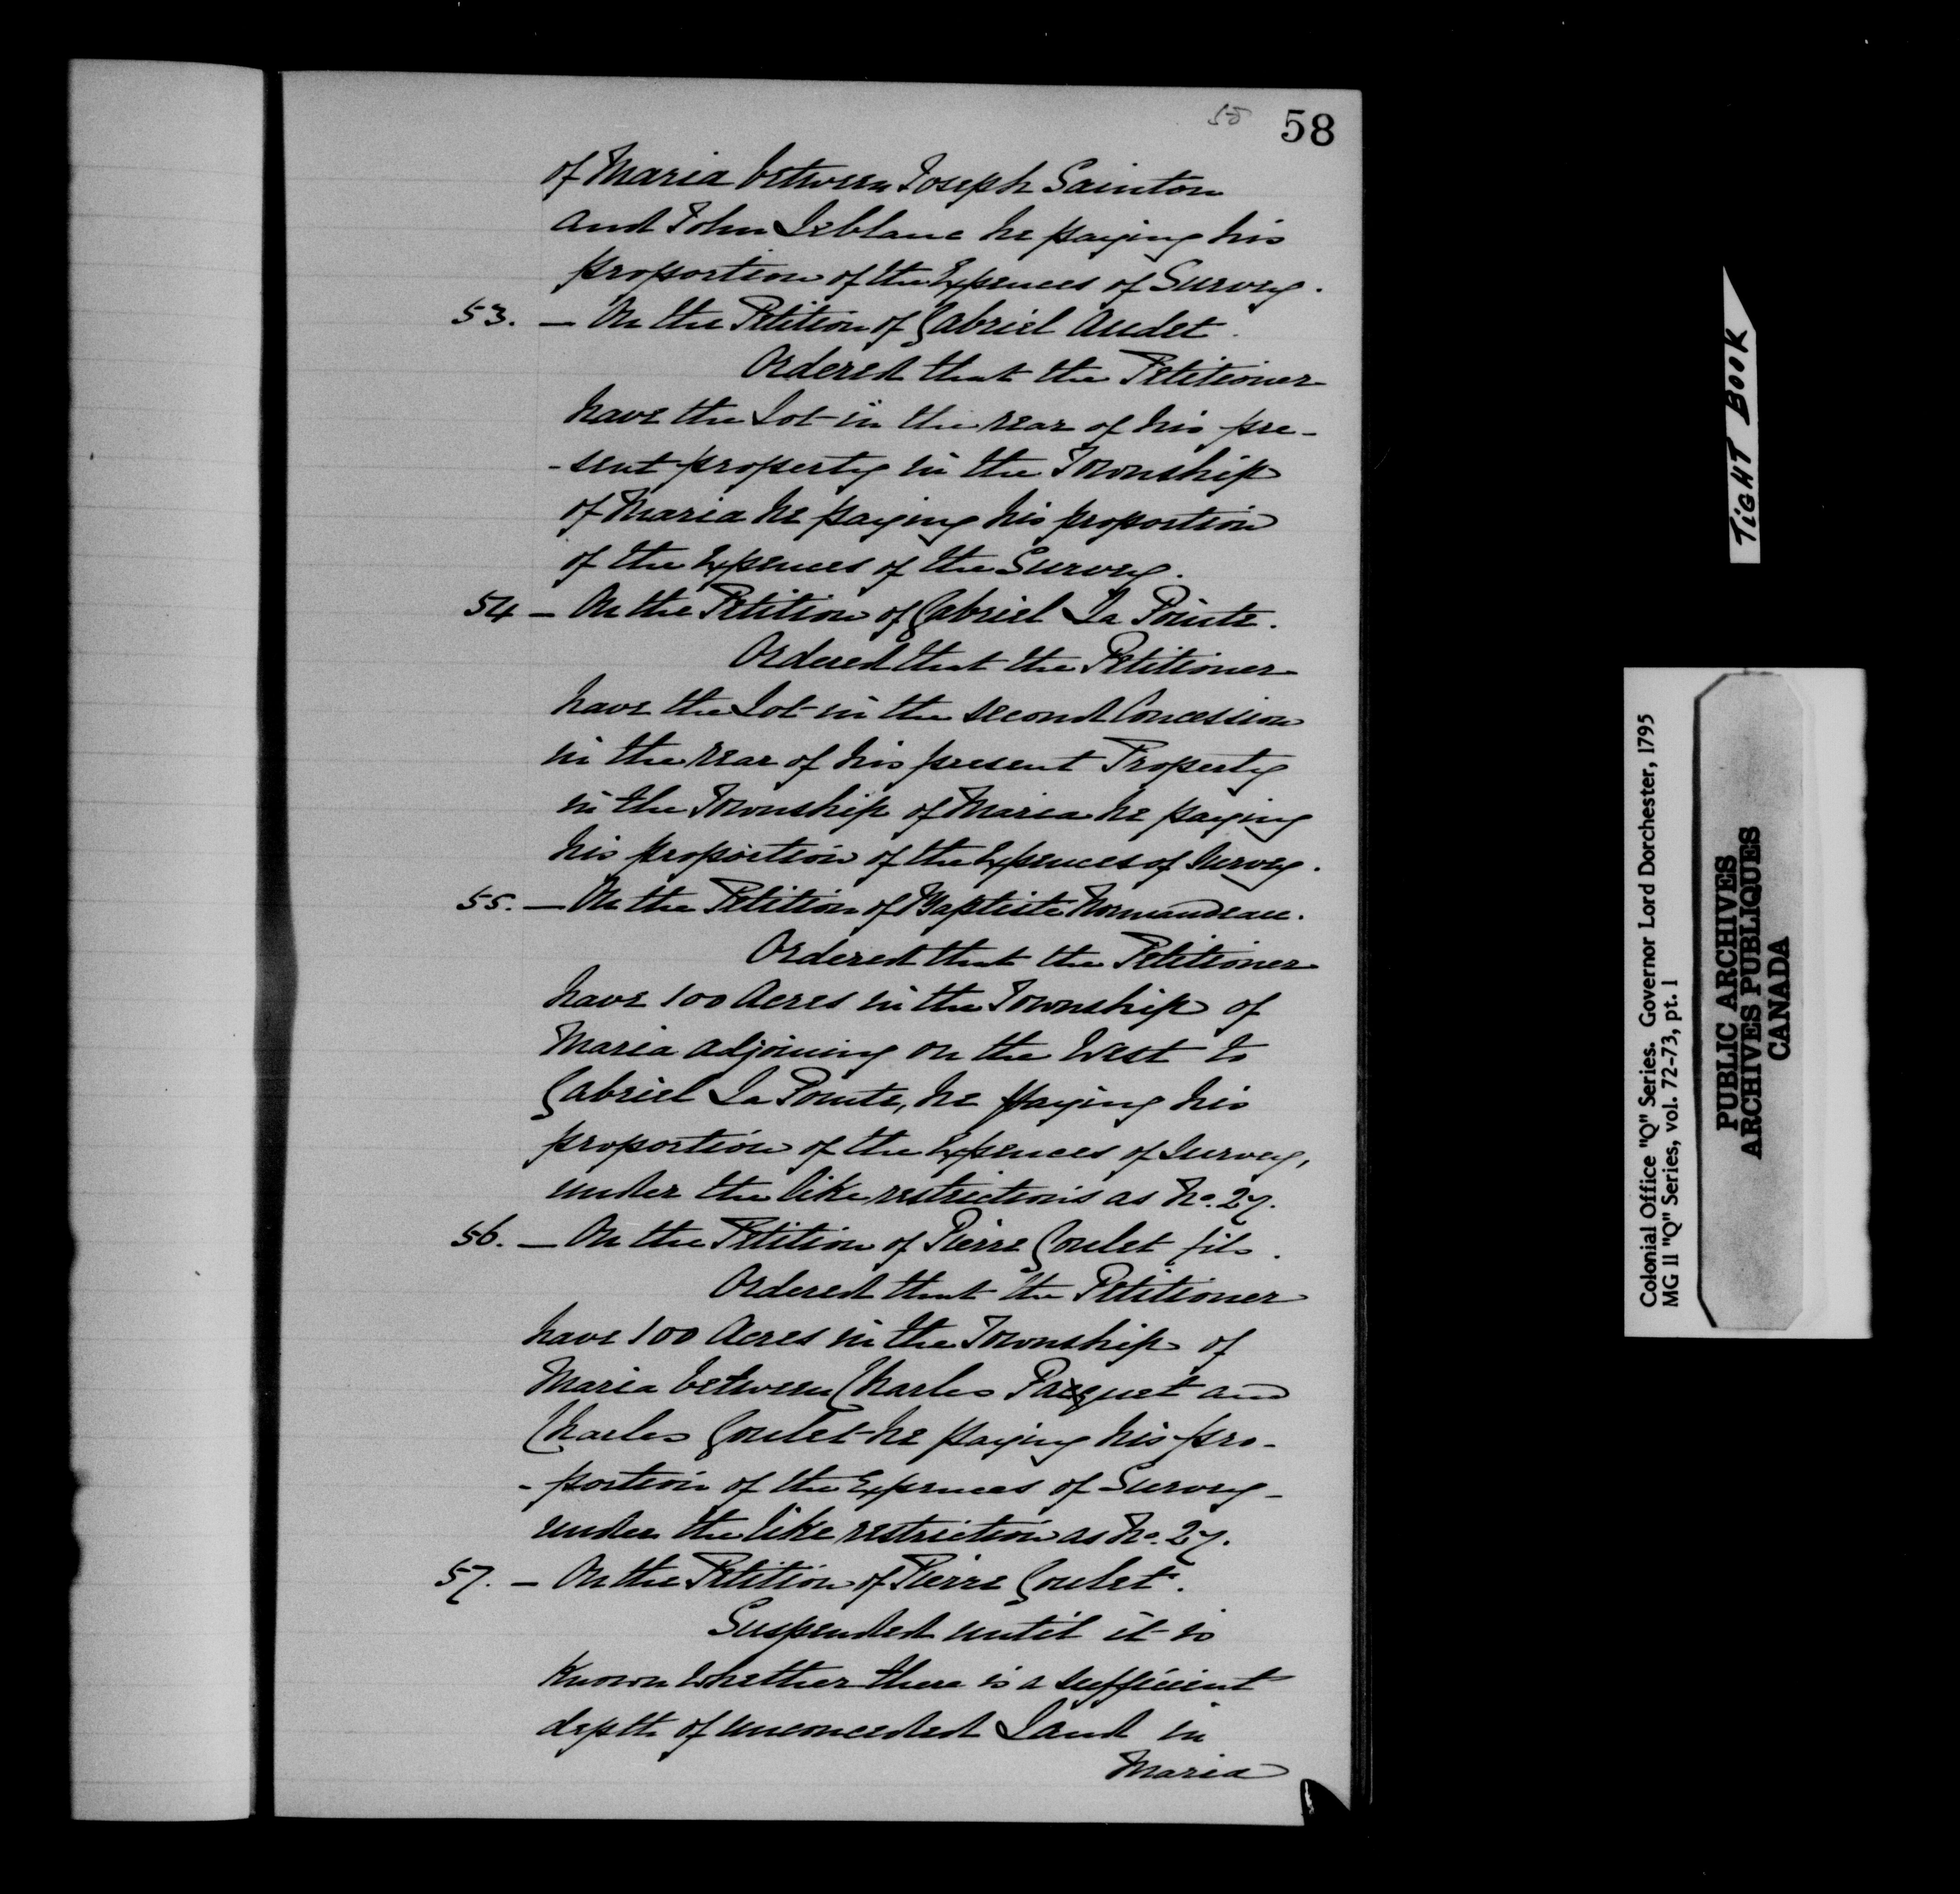 55 58
of Maria between Joseph Sainton
and John Leblanc he paying his
proportion of the Expences of Survey.
53. — On the Petition of Gabriel Audet.
Ordered that the Petitioner
have the Lot in the rear of his pre-
-sent property in the Township
of Maria he paying his proportion
of the Expences of the Survey.
54 — On the Petition of Gabriel La Pointe.
Ordered that the Petitioner
have the Lot in the second Concession
in the rear of his present Property
in the Township of Maria he paying
his proportion of the Expences of Survey.
55. — On the Petition of Baptiste Normandeau.
Ordered that the Petitioner
have 100 Acres in the Township of
Maria adjoining on the West to
Gabriel La Pointe, he paying his
proportion of the Expences of Survey,
under the like restrictions as No. 27.
56. — On the Petition of Pierre Goulet fils.
Ordered that the Petitioner
have 100 Acres in the Township of
Maria between Charles Paquet and
Charles Goulet he paying his pro-
-portion of the Expences of Survey -
under the like restriction as No. 27.
57. — On the Petition of Pierre Goulet.
Suspended until it is
Known whether there is a sufficient
depth of unconceded Land in
Maria
TIGHT BOOK
Colonial Office "Q" Series. Governor Lord Dorchester, 1795
MG 11 "Q" Series, vol. 72-73, pt. 1
PUBLIC ARCHIVES
ARCHIVES PUBLIQUES
CANADA